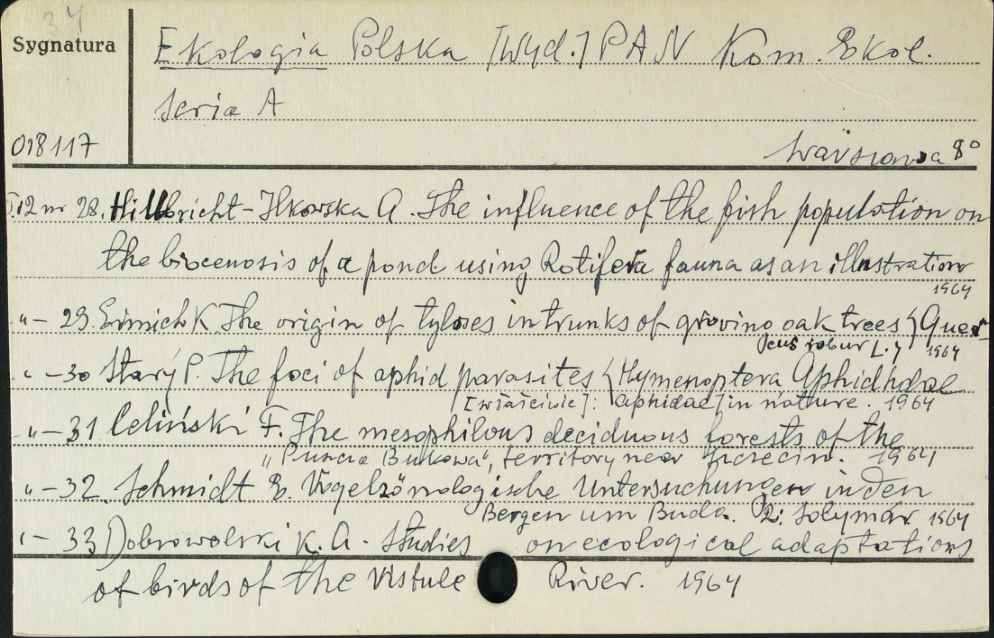 34
Sygnatura
Ekologia Polska [Wyd.] PAN Kom. Ekol.
Seria A
018117
Warszawa 8°
T.12 nr 28. Hillbricht-Ilkowska A. The influence of the fish population on
the biocenosis of a pond using Rotifera fauna as an illustration
1964
-"- 29. Ermich K The origin of tyloses in trunks of growing oak trees (Quer-
cus robur L.) 1964
-"- 30 Starý P. The foci of aphid parasites (Hymenoptera Aphidiidae
[właściwie]: Aphidae) in nature. 1964
-"- 31 Celiński F. The mesophilous deciduous forests of the
"Puszcza Bukowa", territory near Szczecin. 1964
-"- 32. Schmidt E. Vogelzönologische Untersuchungen in den
Bergen um Buda. 2: Solymár. 1964
-"- 33 Dobrowolski K. A. Studies on ecological adaptations
of birds of the Vistule River. 1964